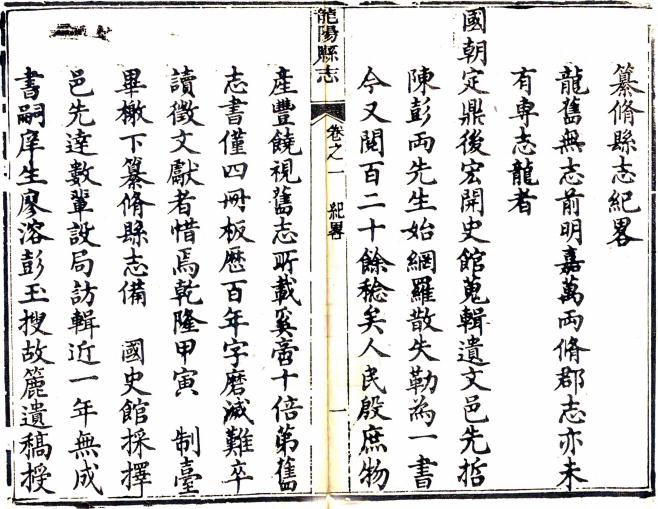 纂脩縣志紀畧
龍舊無志前明嘉萬两脩郡志亦未
有専志龍者
國朝定鼎後宏開史館蒐輯遺文邑先哲
陳彭两先生始網羅散失勒為一書
今又閱百二十餘稔矣人民殷庶物
龍陽縣志
卷之一 紀畧
一
產豐饒視舊志所載奚啻十倍第舊
志書僅四冊板歷百年字磨滅難卒
讀徵文獻者惜焉乾隆甲寅 制臺
畢檄下纂脩縣志備 國史館採擇
邑先達數輩設局訪輯近一年無成
書嗣庠生廖溶彭玉搜故簏遺稿授